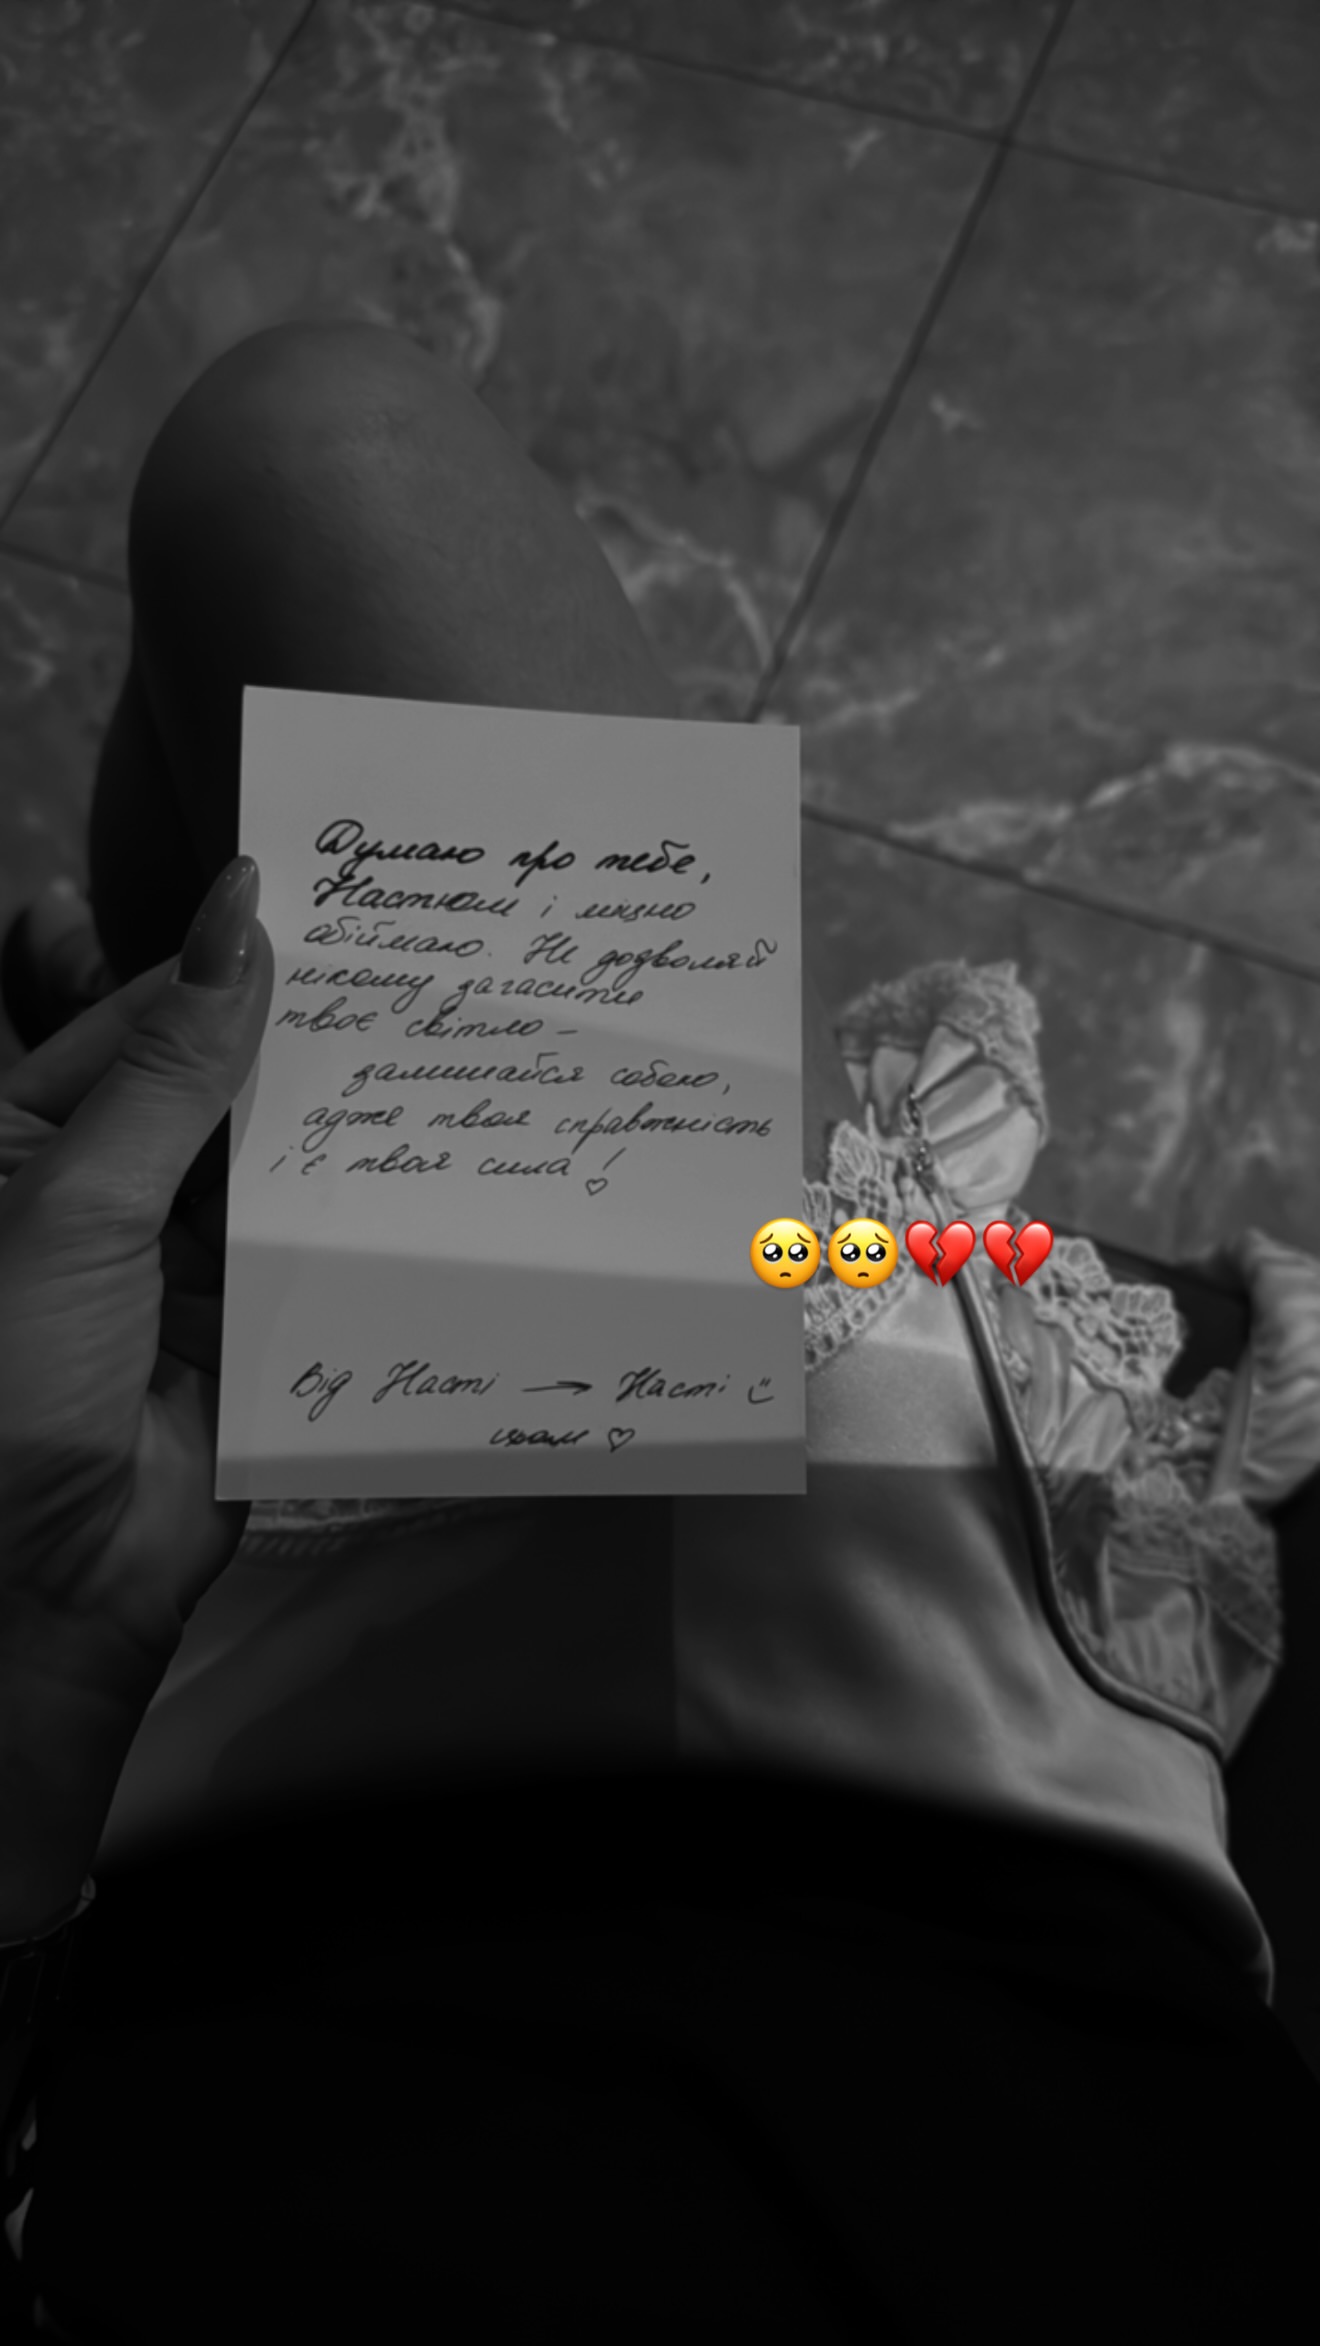 Думаю про тебе,
Настюш і міцно
обіймаю. Не дозволяй
нікому загасити
твоє світло –
залишайся собою,
адже твоя справжність
і є твоя сила! ♡
🥺🥺💔💔
Від Насті → Насті
цьом ♡